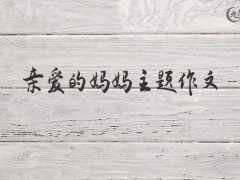 亲爱的妈妈主题作文